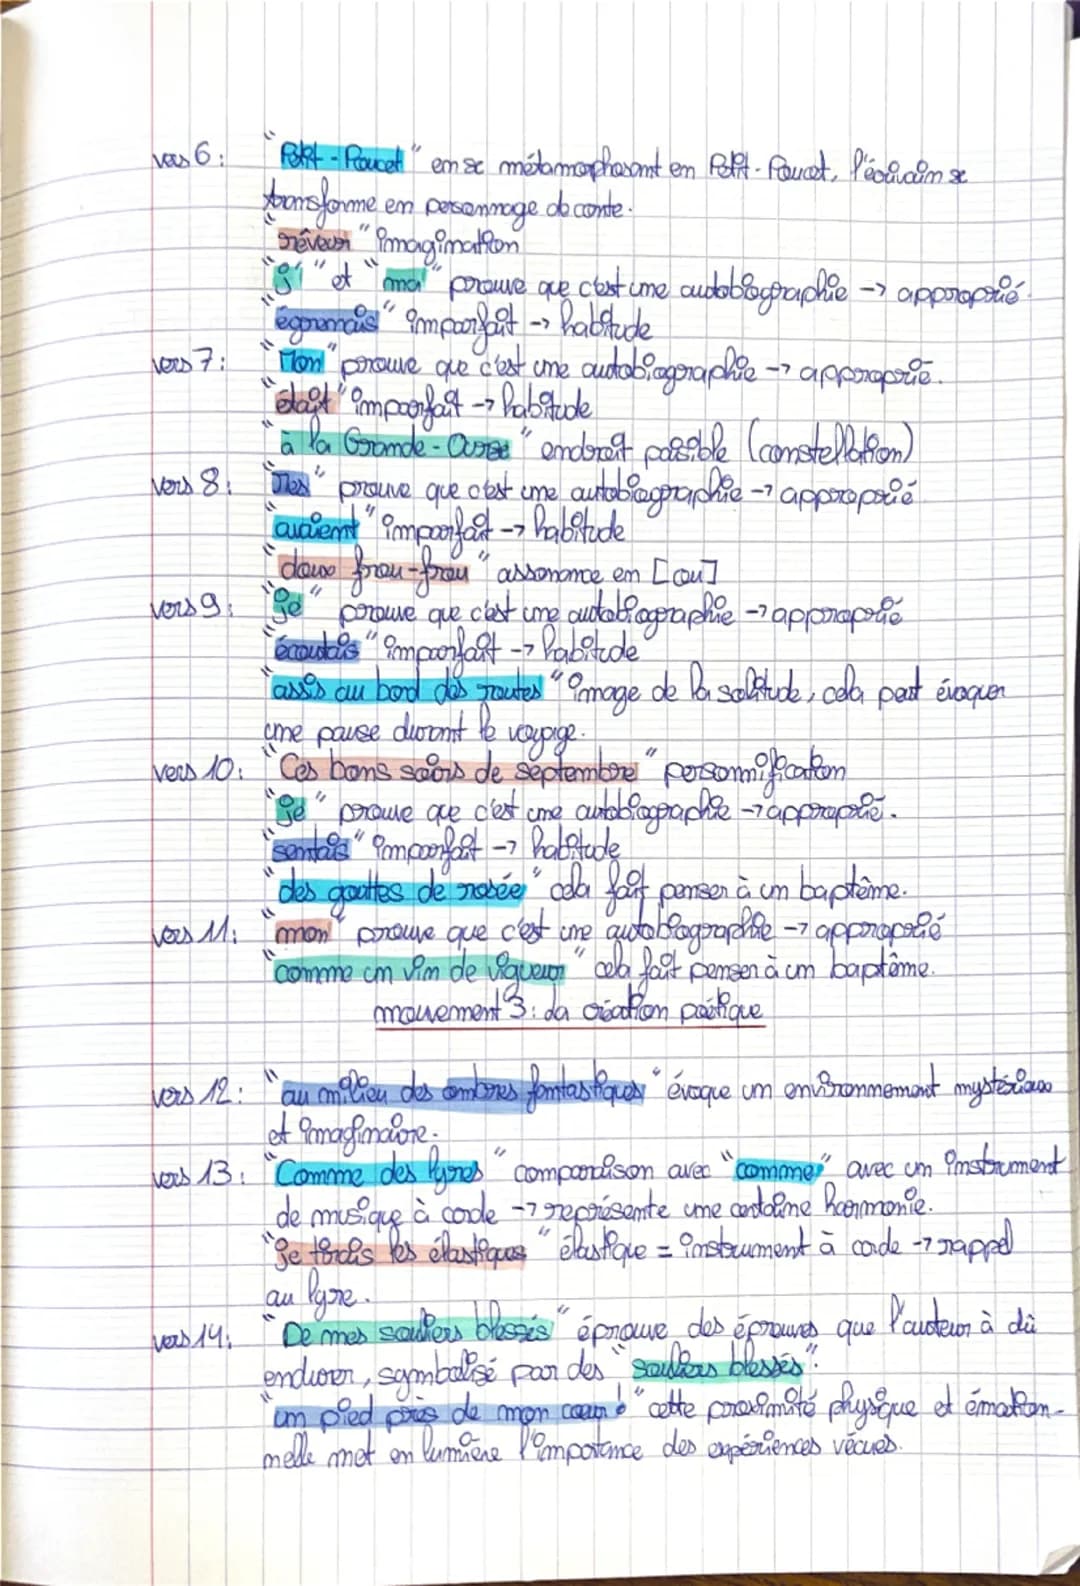 vers 6 : "Petit-Poucet" en se métamorphosant en Petit-Poucet, l'écrivain se
transforme en personnage de conte.
"rêveur" imagination
"j'" et "ma" prouve que c'est une autobiographie -> approprié.
"égrenais" imparfait -> habitude
vers 7 : "Mon" prouve que c'est une autobiographie -> approprié.
"était" imparfait -> habitude
"à la Grande-Ourse" endroit paisible (constellation)
vers 8 : "Mes" prouve que c'est une autobiographie -> approprié
"avaient" imparfait -> habitude
"doux frou-frou" assonance en [ou]
vers 9 : "je" prouve que c'est une autobiographie -> approprié
"écoutais" imparfait -> habitude
"assis au bord des routes" image de la solitude, cela peut évoquer
une pause durant le voyage.
vers 10 : "Ces bons soirs de septembre" personnification
"je" prouve que c'est une autobiographie -> approprié.
"sentais" imparfait -> habitude
"des gouttes de rosée" cela fait penser à un baptême.
vers 11 : "mon" prouve que c'est une autobiographie -> approprié
"comme un vin de vigueur" cela fait penser à un baptême.
mouvement 3 : la création poétique
vers 12 : "au milieu des ombres fantastiques" évoque un environnement mystérieux
et imaginaire.
vers 13 : "Comme des lyres" comparaison avec "comme" avec un instrument
de musique à corde -> représente une certaine harmonie.
"je tirais les élastiques" élastique = instrument à corde -> rappel
au lyre.
vers 14 : "De mes souliers blessés" éprouve des épreuves que l'auteur à dû
endurer, symbolisé par des "souliers blessés".
"un pied près de mon coeur !" cette proximité physique et émotion-
nelle met en lumière l'importance des expériences vécues.